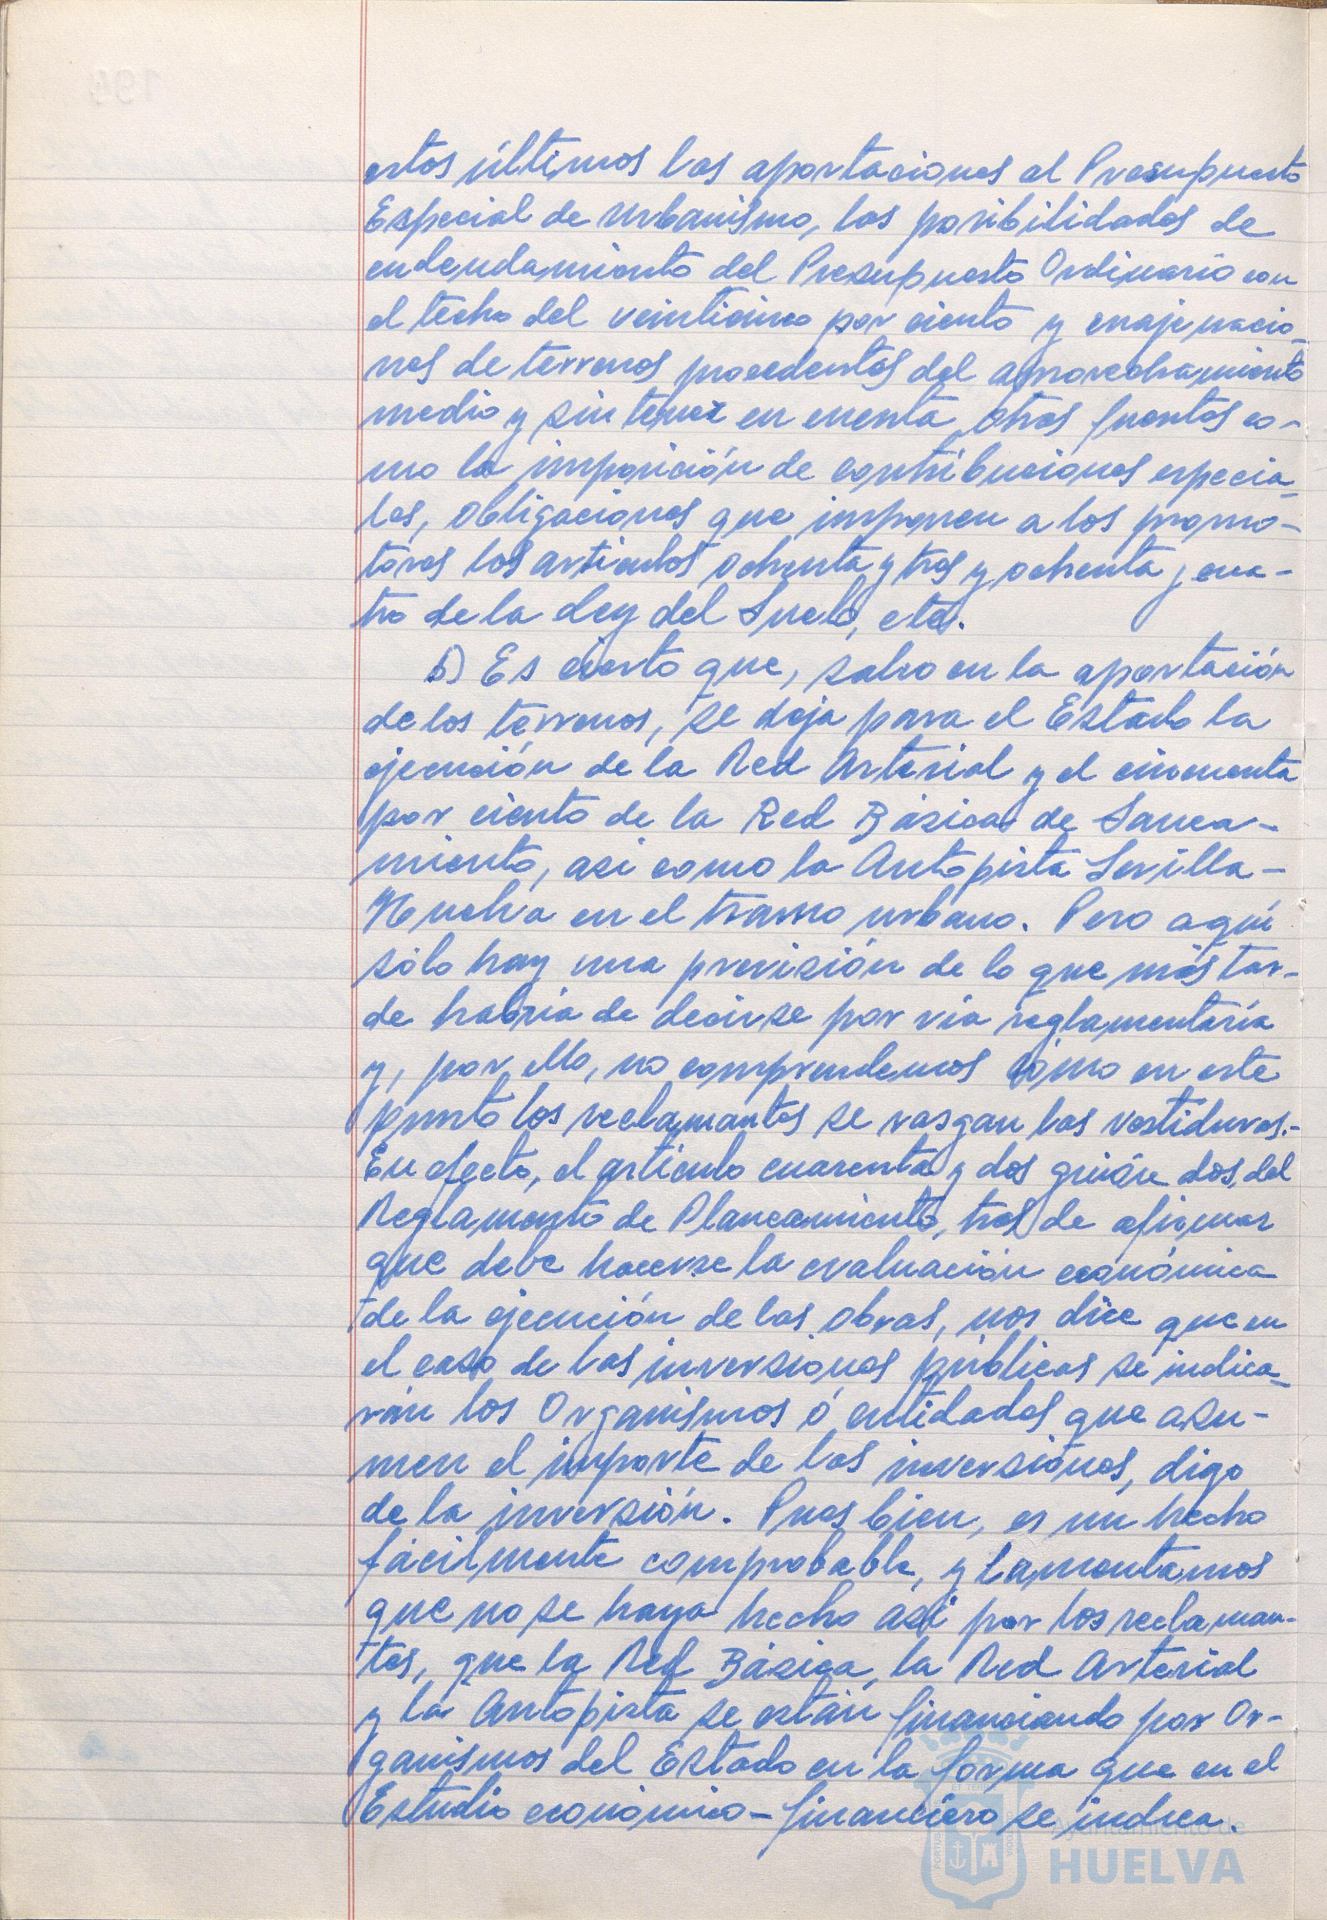 estos últimos las aportaciones al Presupuesto
Especial de Urbanismo, las posibilidades de
endeudamiento del Presupuesto Ordinario con
el techo del veinticinco por ciento y enajenacio-
nes de terrenos procedentes del aprovechamiento
medio y sin tener en cuenta otras fuentes co-
mo la imposición de contribuciones especia-
les, obligaciones que imponen a los promo-
tores los artículos ochenta y tres y ochenta y cua-
tro de la Ley del Suelo, etc.
b) Es cierto que, salvo en la aportación
de los terrenos, se deja para el Estado la
ejecución de la Red Arterial y el cincuenta
por ciento de la Red Básica de Sanea-
miento, asi como la Autopista Sevilla-
Huelva en el tramo urbano. Pero aquí
sólo hay una previsión de lo que más tar-
de habría de decirse por vía reglamentaria
y, por ello, no comprendemos cómo en este
punto los reclamantes se rasgan las vestiduras.-
En efecto, el artículo cuarenta y dos guión dos, del
Reglamento de Planeamiento, tras de afirmar
que debe hacerse la evaluación económica
de la ejecución de las obras, nos dice que en
el caso de las inversiones públicas se indica-
rán los Organismos ó entidades que asu-
men el importe de las inversiones, digo
de la inversión. Pues bien, es un hecho
fácilmente comprobable, y lamentamos
que no se haya hecho así por los reclaman-
tes, que la Red Básica, la Red Arterial
y la Autopista se están financiando por Or-
ganismos del Estado en la forma que en el
Estudio económico-financiero se indica.
Ayuntamiento de
HUELVA